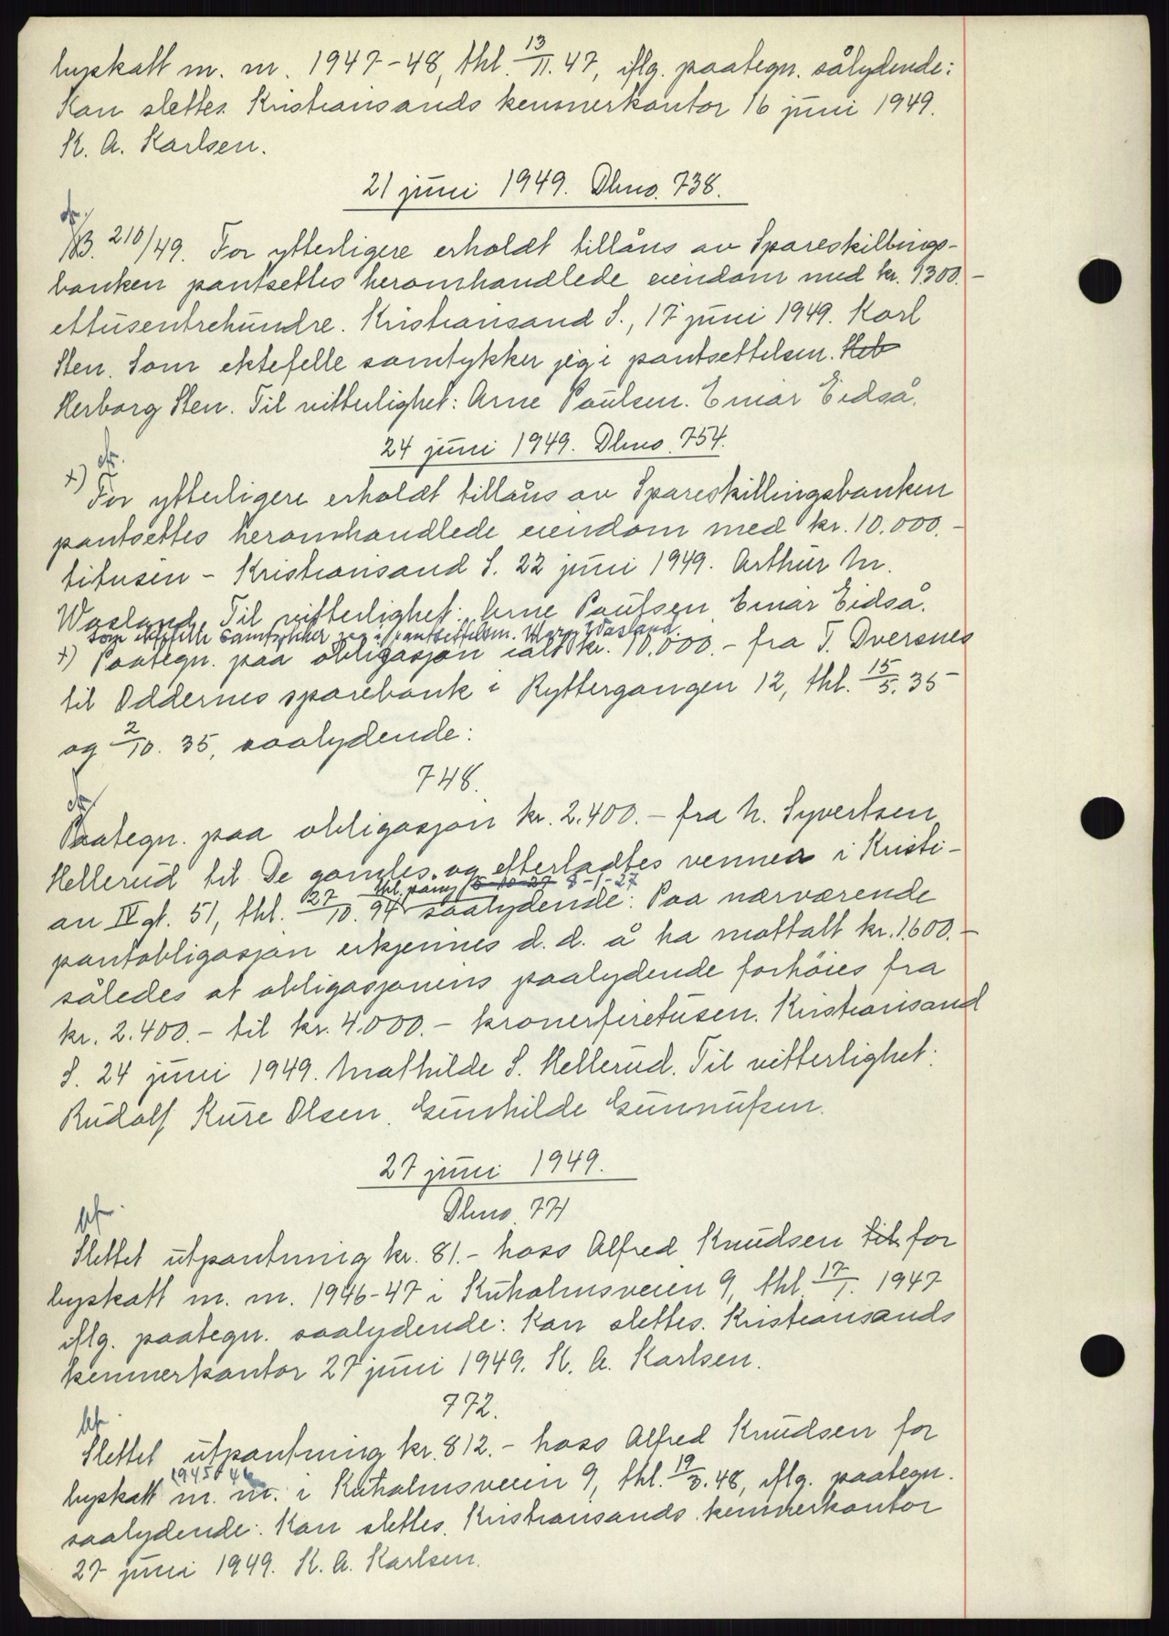 byskatt m. m. 1947-48, thl. 13/11.47, iflg. paategn. sålydende:
Kan slettes. Kristiansands kemnerkontor 16 juni 1949.
K. A. Karlsen.
21 juni 1949. Dbno. 738.
PB. 210/49. For ytterligere erholdt tillåns av Spareskillings-
banken pantsettes heromhandlede eiendom med kr. 1300.-
ettusentrehundre. Kristiansand S., 17 juni 1949. Karl
Sten. Som ektefelle samtykker jeg i pantsettelsen. Heb
Herborg Sten. Til vitterlighet: Arne Poulsen. Einar Eidså.
24 juni 1949. Dbno. 754.
x) For ytterligere erholdt tillåns av Spareskillingsbanken
pantsettes heromhandlede eiendom med kr. 10.000.-
titusen - Kristiansand S. 22 juni 1949. Arthur M.
Wasland. Til vitterlighet: Arne Poulsen Einar Eidså.
Som ektefelle samtykker jeg i pantsettelsen. Wasland.
x) Paategn. paa obligasjon ialt kr. 10.000.- fra T. Dversnes
til Oddernes sparebank i Ryttergangen 12, thl. 15/5. 35
og 2/10. 35, saalydende:
748.
Paategn. paa obligasjon kr. 2.400.- fra N. Syvertsen
Hellerud til De gamles og efterladtes venner i Kristi-
an IV gt. 51, thl. 27/10. 94 saalydende: Paa nærværende
thl. paany 5-10-27 8-1-27
pantobligasjon erkjennes d. d. å ha mottatt kr. 1.600.-
således at obligasjonens paalydende forhöies fra
kr. 2.400.- til kr. 4.000.- kronerfiretusen. Kristiansand
S. 24 juni 1949. Mathilde S. Hellerud. Til vitterlighet:
Rudolf Kure Olsen. Gunhilde Gunnufsen.
27 juni 1949.
Dbno. 771
Slettet utpantning kr. 81.- hoss Alfred Knudsen til for
byskatt m. m. 1946-47 i Kuholmsveien 9, thl. 17/1. 1947
iflg. paategn. saalydende: Kan slettes. Kristiansands
kemnerkontor 27 juni 1949. K. A. Karlsen.
772.
Slettet utpantning kr. 812.- hoss Alfred Knudsen for
1945 46
byskatt m. m. i Kuholmsveien 9, thl. 19/3. 48, iflg. paategn.
saalydende: Kan slettes. Kristiansands kemnerkontor
27 juni 1949. K. A. Karlsen.